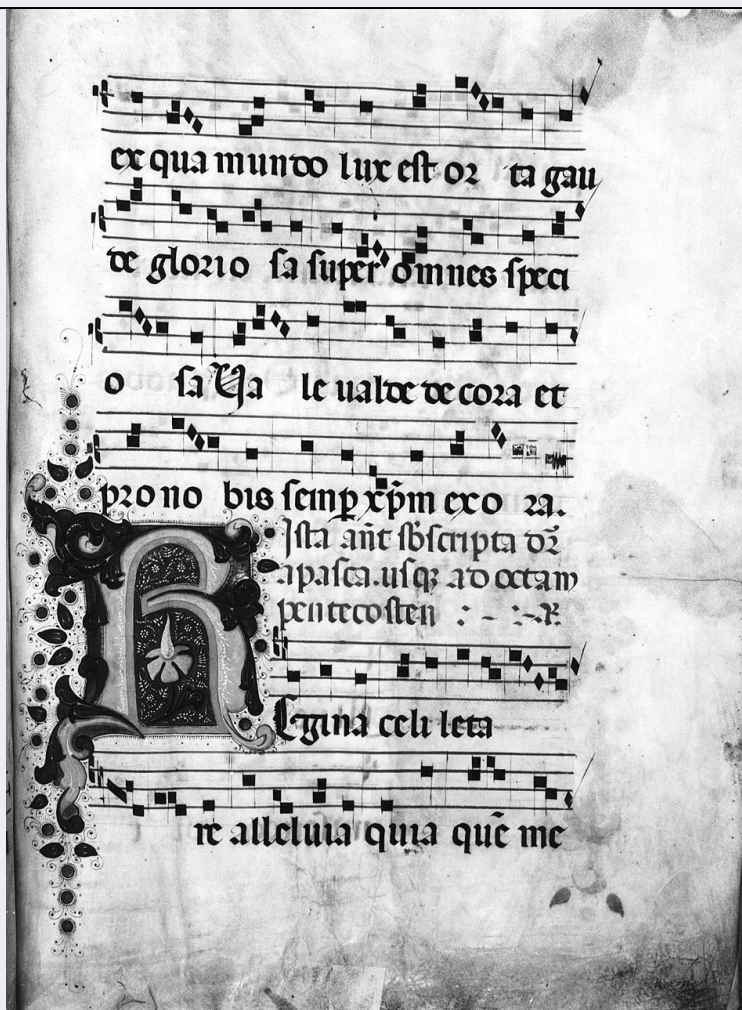 ex qua mundo lux est or ta gau
de glorio sa super omnes speci
o sa Va le ualde decora et
pro no bis semp xpm exo ra.
Ista ant sbscripta dr
a pasca usq ad octam
pentecosten : - : - R.
REgina celi leta
re alleluia quia quē me